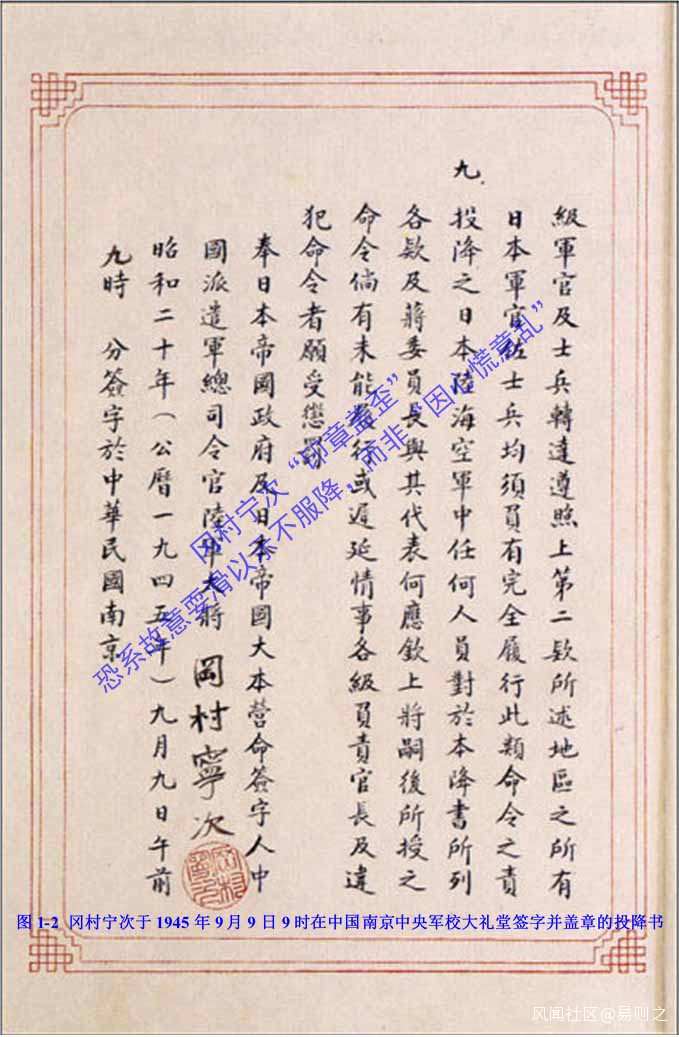 級軍官及士兵轉達遵照上第二欵所述地區之所有
日本軍官佐士兵均須負有完全履行此類命令之責
九、投降之日本陸海空軍中任何人員對於本降書所列
各欵及蔣委員長與其代表何應欽上將嗣後所授之
命令倘有未能履行或遲延情事各級負責官長及違
犯命令者願受懲罰
奉日本帝國政府及日本帝國大本營命簽字人中
國派遣軍總司令官陸軍大將 岡村寧次
昭和二十年（公曆一九四五年）九月九日午前
九時 分簽字於中華民國南京
冈村宁次“印章盖歪”
恐系故意耍滑以示不服降，而非“因心慌意乱”
图 1-2 冈村宁次于 1945 年 9 月 9 日 9 时在中国南京中央军校大礼堂签字并盖章的投降书
风闻社区@易则之